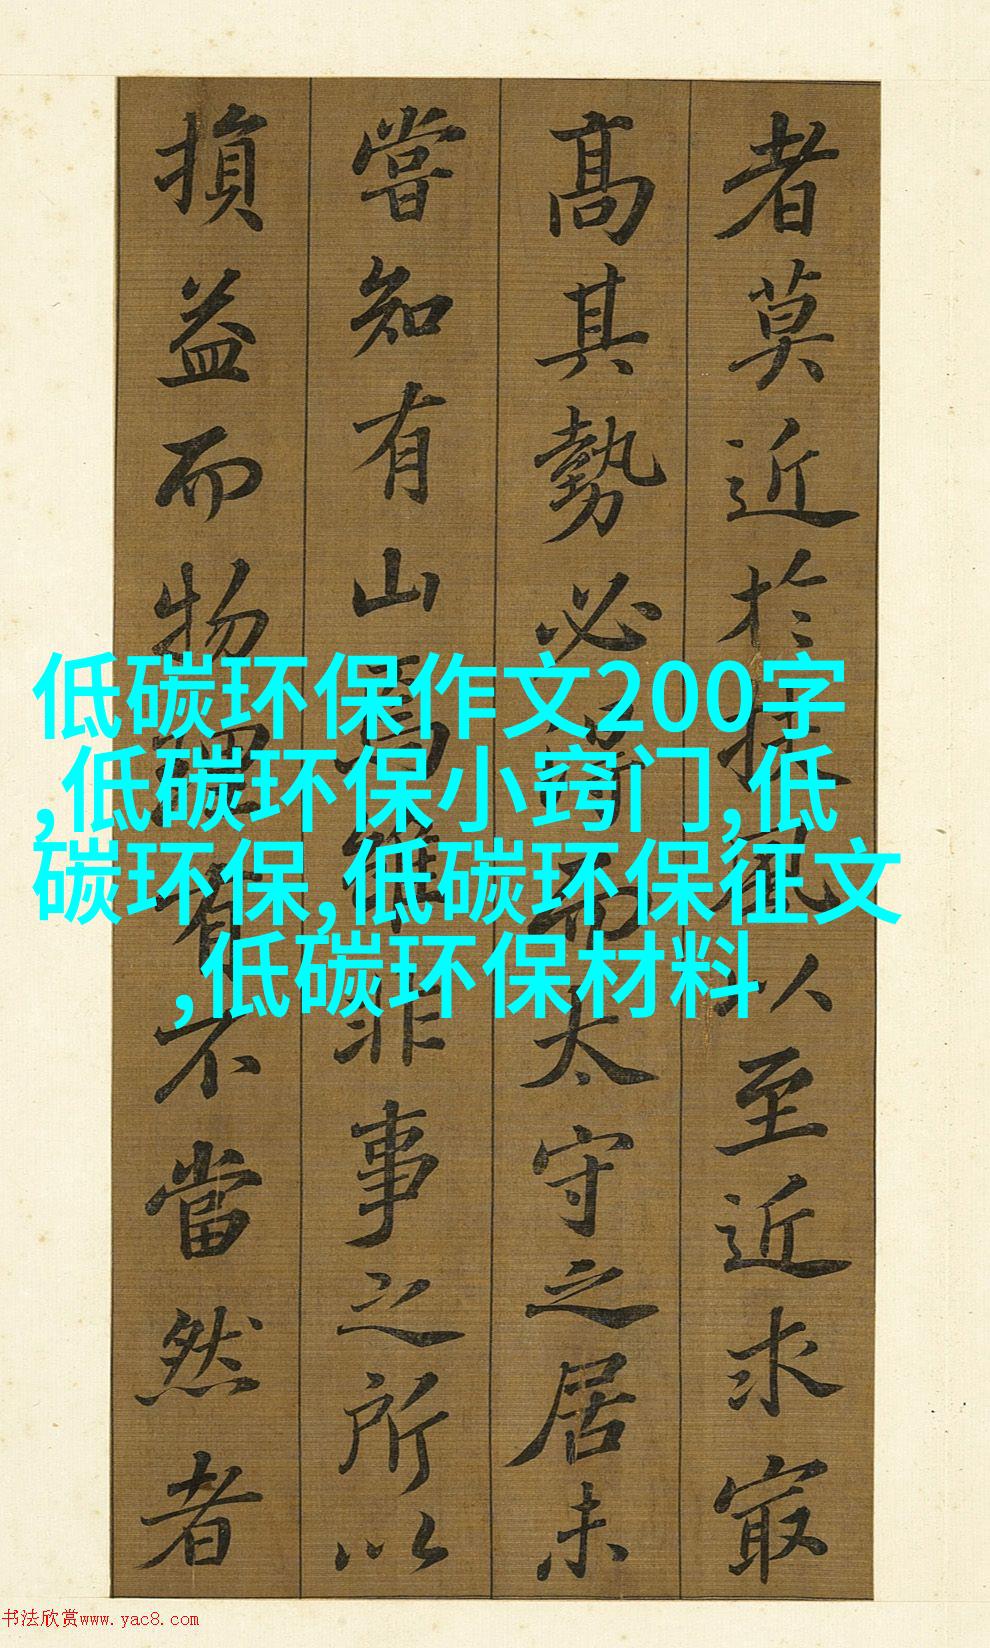 者莫近於扶風以至近求最
高其勢必得而太守之居未
嘗知有山焉雖非事之所以
損益而物理有不當然者
低碳环保作文200字
,低碳环保小窍门,低
碳环保,低碳环保征文
,低碳环保材料
书法欣赏www.yac8.com